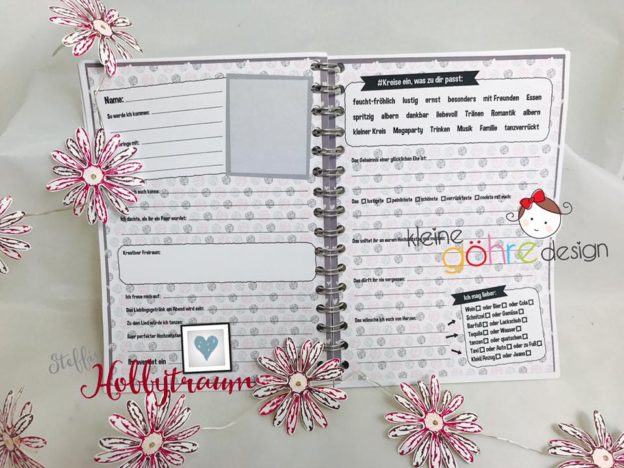 Name:
So werde ich kommen:
bringe mit:
Ich dachte, als ihr ein Paar wurdet:
Kreativer Freiraum:
Ich freue mich auf:
Das Lieblingsgetränk am Abend wird sein:
Zu dem Lied würde ich tanzen:
Euer perfekter Hochzeitstanz
ein
Steffis
Hobbytraum
#Kreise ein, was zu dir passt:
feucht-fröhlich lustig ernst besonders mit Freunden Essen
spritzig albern dankbar liebevoll Tränen Romantik albern
kleiner Kreis Megaparty Trinken Musik Familie tanzverrückt
Das Geheimnis einer glücklichen Ehe ist:
Das lustigste peinlichste schönste verrückteste
Das solltet ihr an eurem
kleine
göhre design
Das dürft ihr nie vergessen:
Das wünsche ich euch von Herzen:
Ich mag lieber:
Wein oder Bier oder Cola
Schnitzel oder Gemüse
Barfuß oder Lackschuh
Tequila oder Wasser
tanzen oder quatschen
Taxi oder Auto oder zu Fuß
Kleid/Anzug oder Jeans